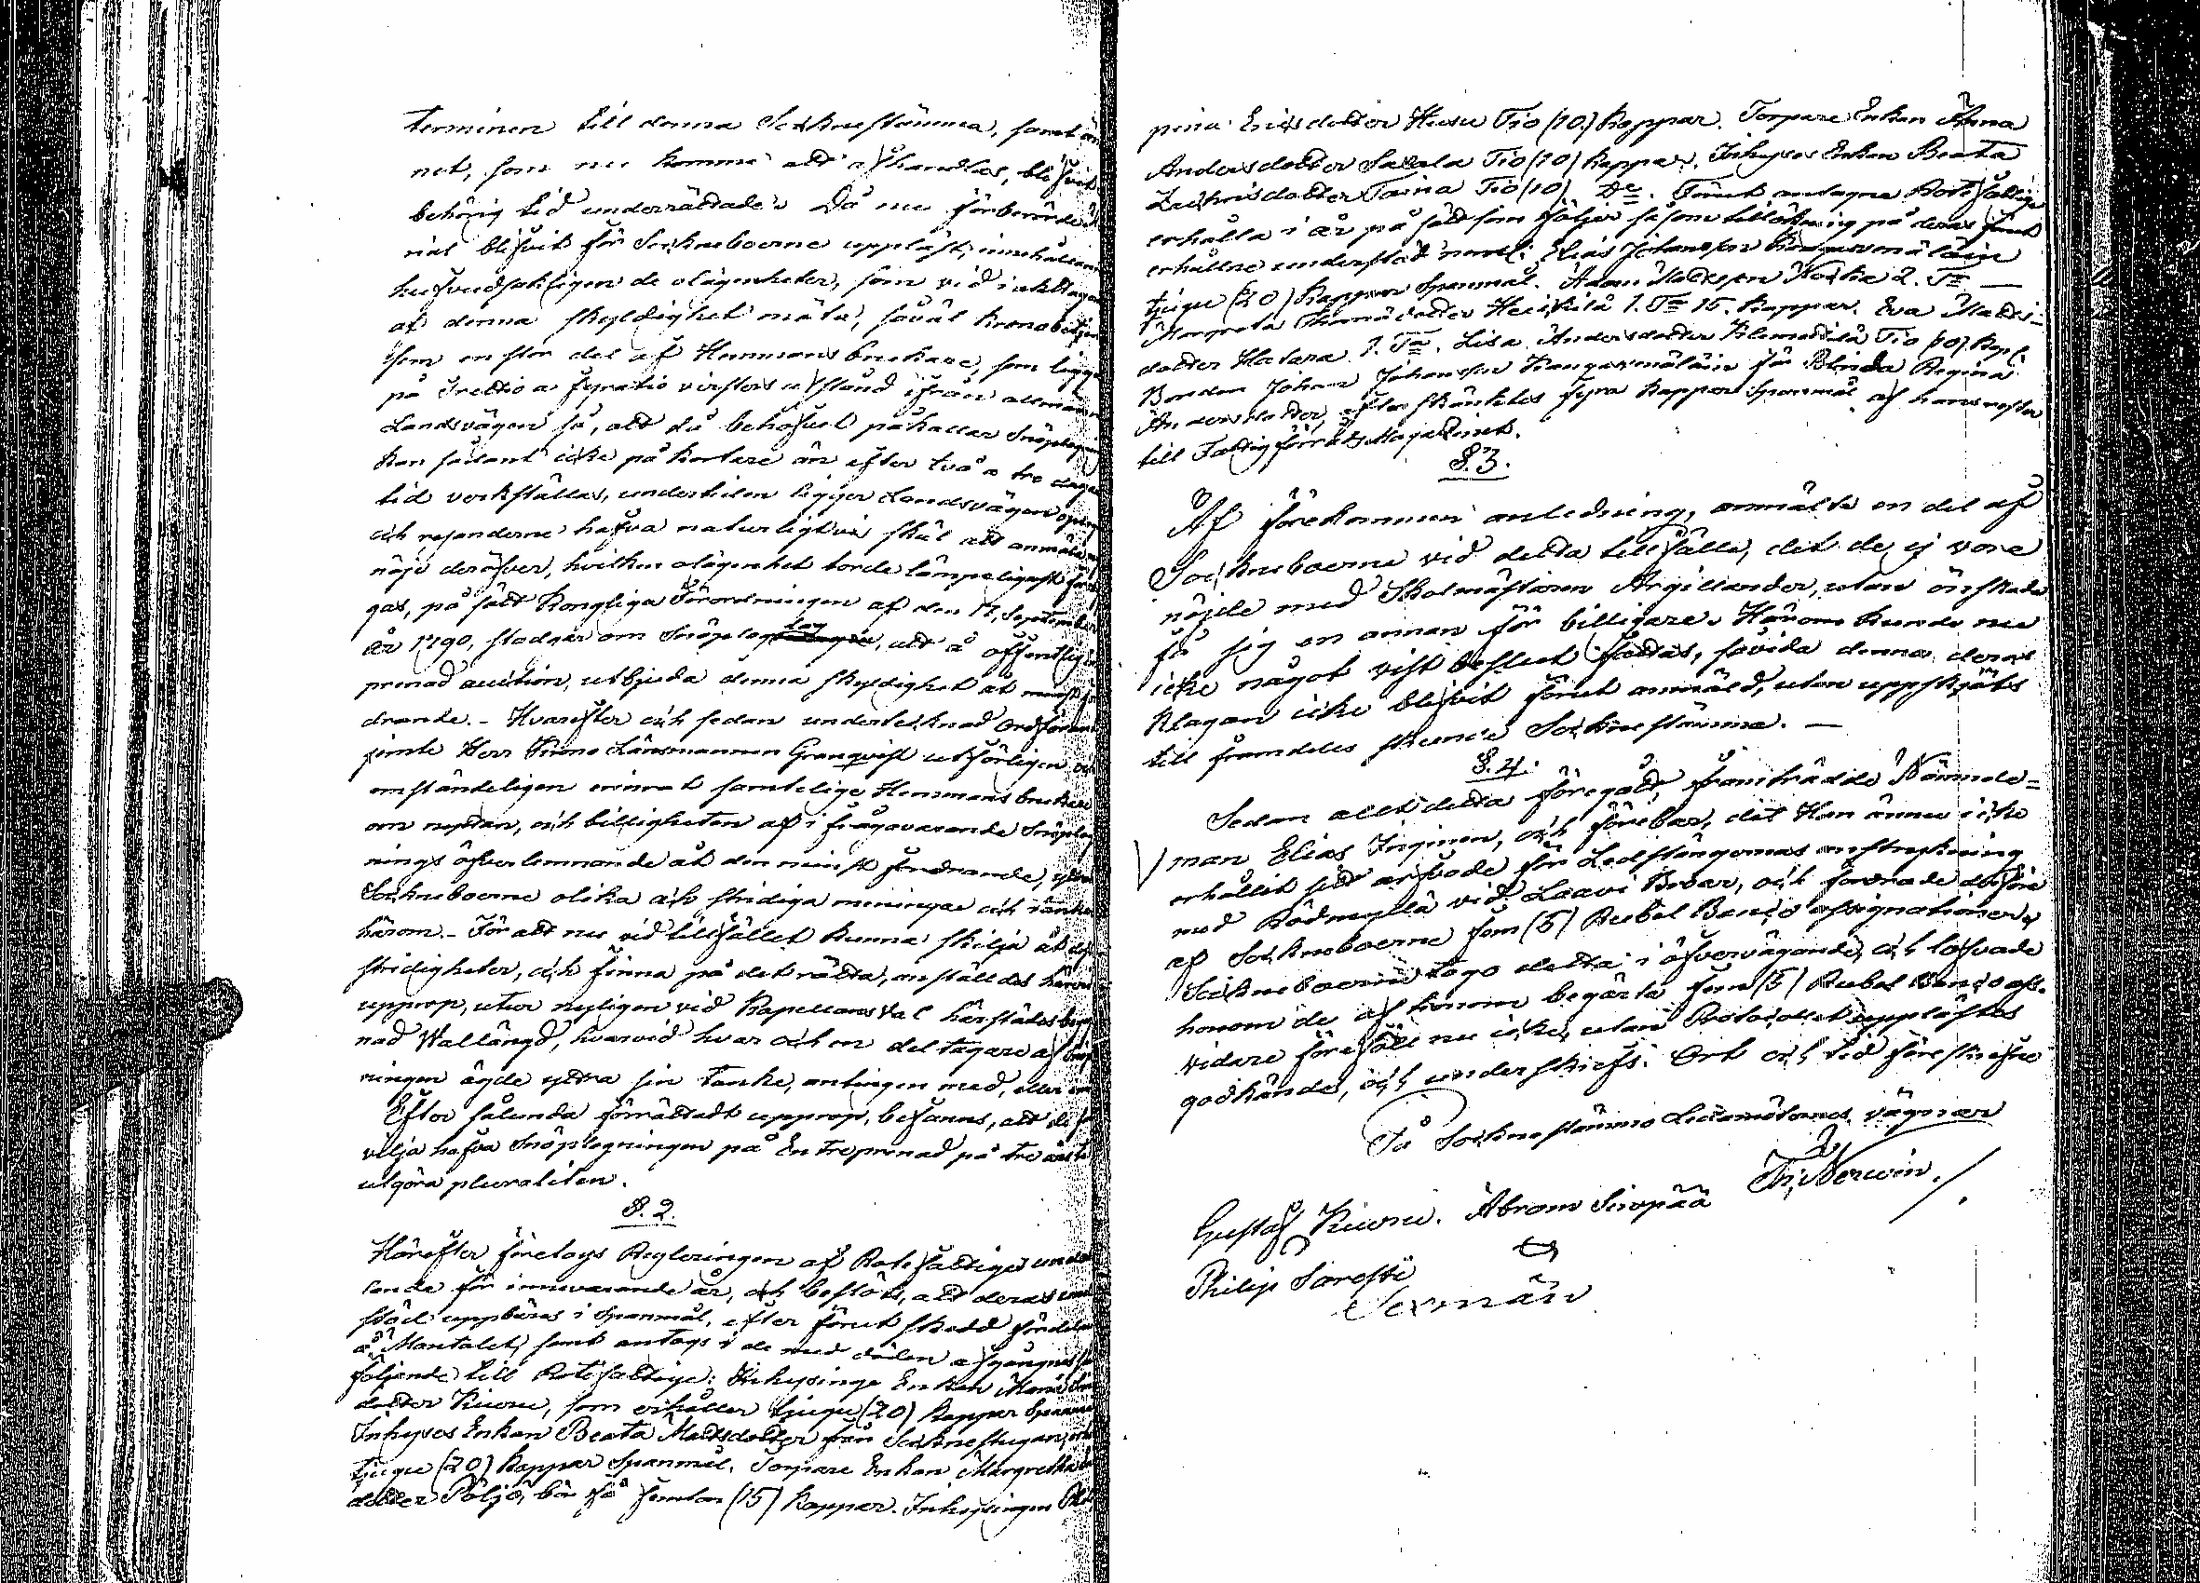 terminen till denna Sockne stämma, samt äm
net, som nu komma att afhandlas, blifvit
behörig tid underrättade. Då nu förberörde
rial blifvit för Sockneboerne uppläst, innehålland
hufvudsakligen de olägenheter, som vid iakttagan
af denna skyldighet möta, såväl Kronobetjen
som en stor del af Hemmans brukare, som ligga
på Trettio a fyratio virstors afstånd ifrån allmänn
Landsvägen så, att då behofvet påkallar Snöplogni
kan sådant icke på kortare än efter två a tre dagar
tid verkställas, undertiden ligger Landsvägen open
och resanderne hafva naturligtvis skäl att anmäla
nöje deröfver, hvilken olägenhet torde lämpeligast före
gas, på sätt Kongliga Förordningen af den 17. September
År 1790, stadgar om Snöplog, att å offentlig
prenad auction, utbjuda denna skyldighet åt minst fo
drande. - Hvarefter och sedan undertecknad Ordförand
jemte Herr Krono Länsmannen Granqvist utförligen och
omständeligen erinrat samtelige Hemmans brukare
om nyttan, och billigheten af i frågavarande Snöplog
nings öfverlemnande åt den minst fordrande, yttra
Sockneboerne olika och stridiga meningar och tankar
härom. - För att nu vid tillfället kunna skilja åt
stridigheter, och finna på det rätta, anställdes härom
upprop, utur nyligen vid Kapellans Val härstädes begag
nad Vallängd, hvarvid hvar och en deltagare af
ningen ägde yttra sin tanke, antingen med, eller em
Efter sålunda förrättadt upprop, befanns, att de
vilja hafva Snöplogningen på Entreprenad på tre års
utgöra pluraliten.
§. 2.
Härefter företogs Regleringen af Rotefattiges under
lende för innevarande år, och beslöts, att deras und
stöd uppbäres i Spanmål, efter förut skedd fördeln
å Mantalet, samt antogs i de med döden afgångnes
följande till Rotefattige: Inhysinge Enkan Maria
dotter Kiuru, som erhåller tjugu (20) Kappar Spanmål
Inhyses Enkan Beata Mattsdotter från Socknestugan,
tjugu (20) Kappar Spanmål. Torpare Enkan Margretha
dotter Päljö, bör få femton (15) Kappar. Inhysingen
pina Ericsdotter Kiuru Tio (10) Kappar. Torpare Enkan Anna
Andersdotter Saxala Tio (10) Kappar. Inhyses Enkan Beata
Zachrisdotter Taina Tio (10) Do. Förut antagne Rotefattige
erhålla i år på sätt som följer såsom tillökning på deras förut
erhållne understöd neml: Elias Johansson Kangasmäläin
tjugu (20) Kappar Spanmål. Adam Mattsson Koska 2. Tr —
Margreta Thomædotter Heickilä 1. Tr 15. Kappar. Eva Matts-
dotter Hatara 1. Tr. Lisa Andersdotter Klemettilä Tio (10) Kap:
Bonden Johan Johansson Kangasmäläin för Blinda Regina
Andersdotter, efterskänktes fyra Kappar Spanmål af hans rester
till Fattigförråds Magazinet.
§. 3.
Af förekommen anledning, anmälte en del af
Sockneboerne vid detta tillfälle, det de ej vore
nöjde med Skolmästaren Argillander, utan önskade
få sig en annan för billigare. Härom kunde nu
icke något vist beslut fattas, såvida denna deras
Klagan icke blifvit förut anmäld, utan uppskjöts
till framdeles skeende Sockne stämma. —
§. 4.
Sedan allt detta föregått, framträdde Nämnde=
man Elias Inginen, och förebar, det Han ännu icke
erhållit sitt arfvode för Ledstängornas anstrykning
med Rödmylla vid Laavi Broar, och fordrade derföre
af Sockneboerne fem (5) Rubel Banco assignationer
Sockneboerne togo detta i öfvervägande, och lofvade
honom de af honom begärta fem (5) Rubel Banco ass.
vidare föreföll nu icke, utan Protocollet upplästes
godkändes, och underskrefs. Ort och tid föreskrefne
På Sockne stämmo Ledamöternes vägnar
Th: Nerwin.
Gustaf Kiuru. Abram Siropää
Philip Soresti
Sexmän